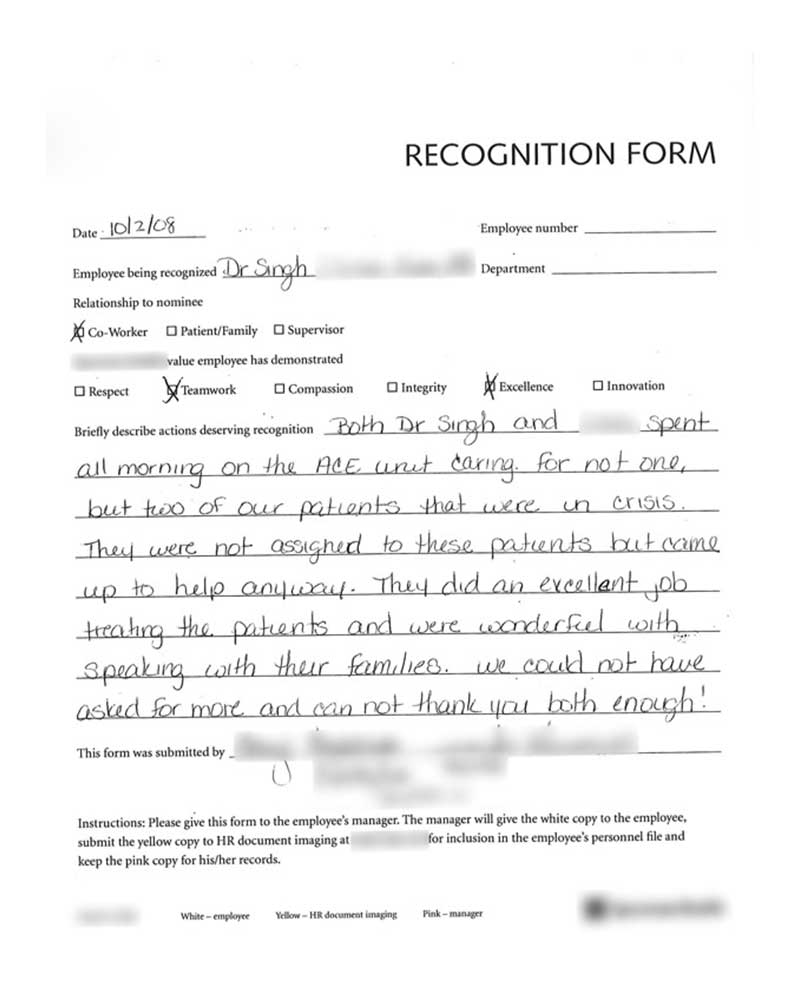 RECOGNITION FORM
Date 10/2/08 Employee number
Employee being recognized Dr Singh Department
Relationship to nominee
Co-Worker Patient/Family Supervisor
value employee has demonstrated
Respect Teamwork Compassion Integrity Excellence Innovation
Briefly describe actions deserving recognition Both Dr Singh and spent
all morning on the ACE unit caring. for not one,
but two of our patients that were in crisis.
They were not assigned to these patients but came
up to help anyway. They did an excellant job
treating the patients and were wonderful with
speaking with their families. we could not have
asked for more and can not thank you both enough!
This form was submitted by
Instructions: Please give this form to the employee's manager. The manager will give the white copy to the employee,
submit the yellow copy to HR document imaging at for inclusion in the employee's personnel file and
keep the pink copy for his/her records.
White – employee Yellow – HR document imaging Pink – manager